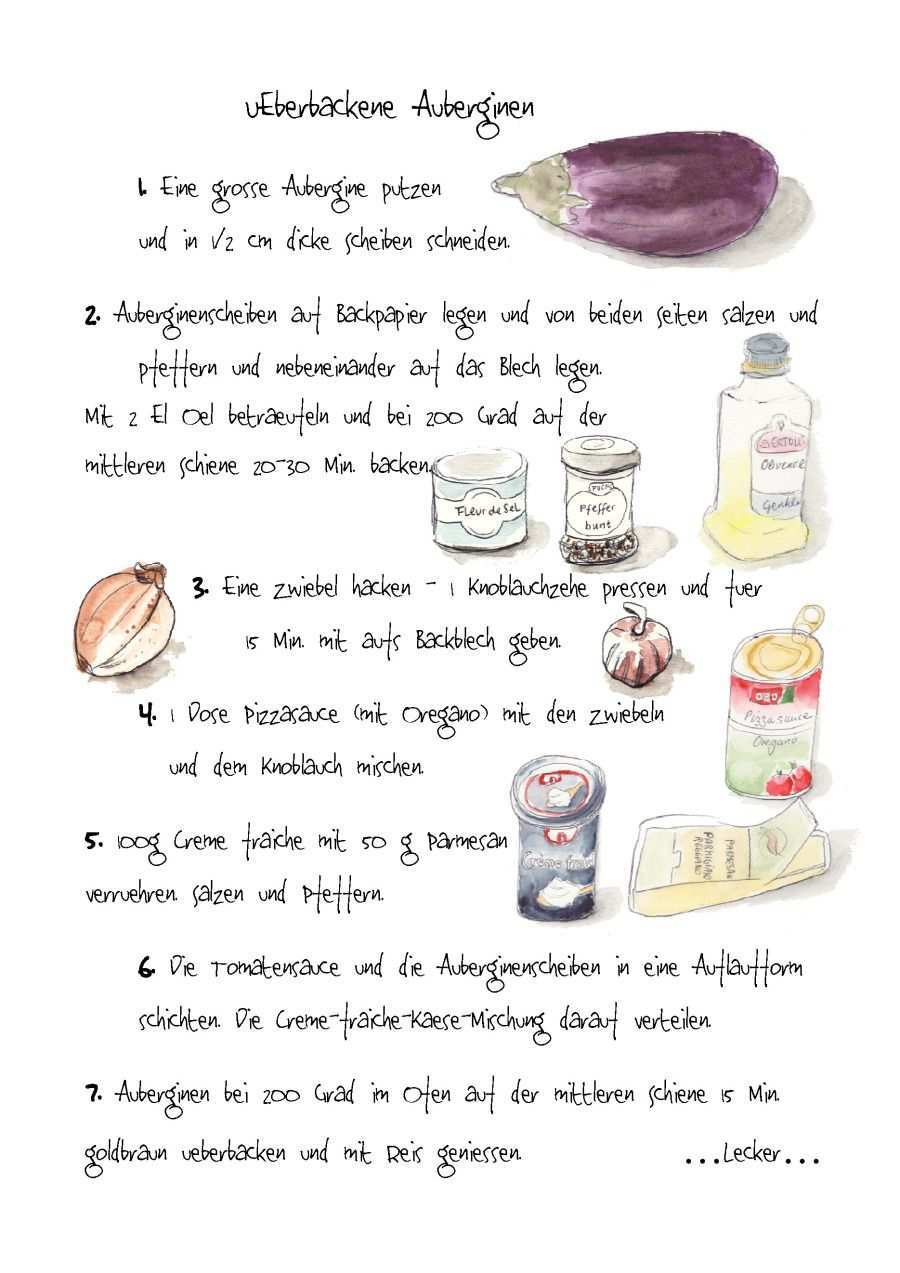 uEberbackene Auberginen
1. Eine grosse Aubergine putzen
und in 1/2 cm dicke scheiben schneiden.
2. Auberginenscheiben auf Backpapier legen und von beiden seiten salzen und
pfeffern und nebeneinander auf das Blech legen.
Mit 2 El Oel betraeufeln und bei 200 Grad auf der
mittleren schiene 20-30 Min. backen.
Fleur de Sel
Pfeffer
bunt
BERTOLLI
3. Eine zwiebel hacken - 1 Knoblauchzehe pressen und fuer
15 Min. mit aufs Backblech geben.
4. 1 Dose Pizzasauce (mit Oregano) mit den zwiebeln
und dem Knoblauch mischen.
Pizzasauce
Oregano
5. 100g Creme fraiche mit 50 g Parmesan
verruehren. salzen und Pfeffern.
PARMIGIANO
REGGIANO
PARMESAN
6. Die Tomatensauce und die Auberginenscheiben in eine Auflaufform
schichten. Die Creme-fraiche-Kaese-Mischung darauf verteilen.
7. Auberginen bei 200 Grad im Ofen auf der mittleren schiene 15 Min.
goldbraun ueberbacken und mit Reis geniessen.
...Lecker...